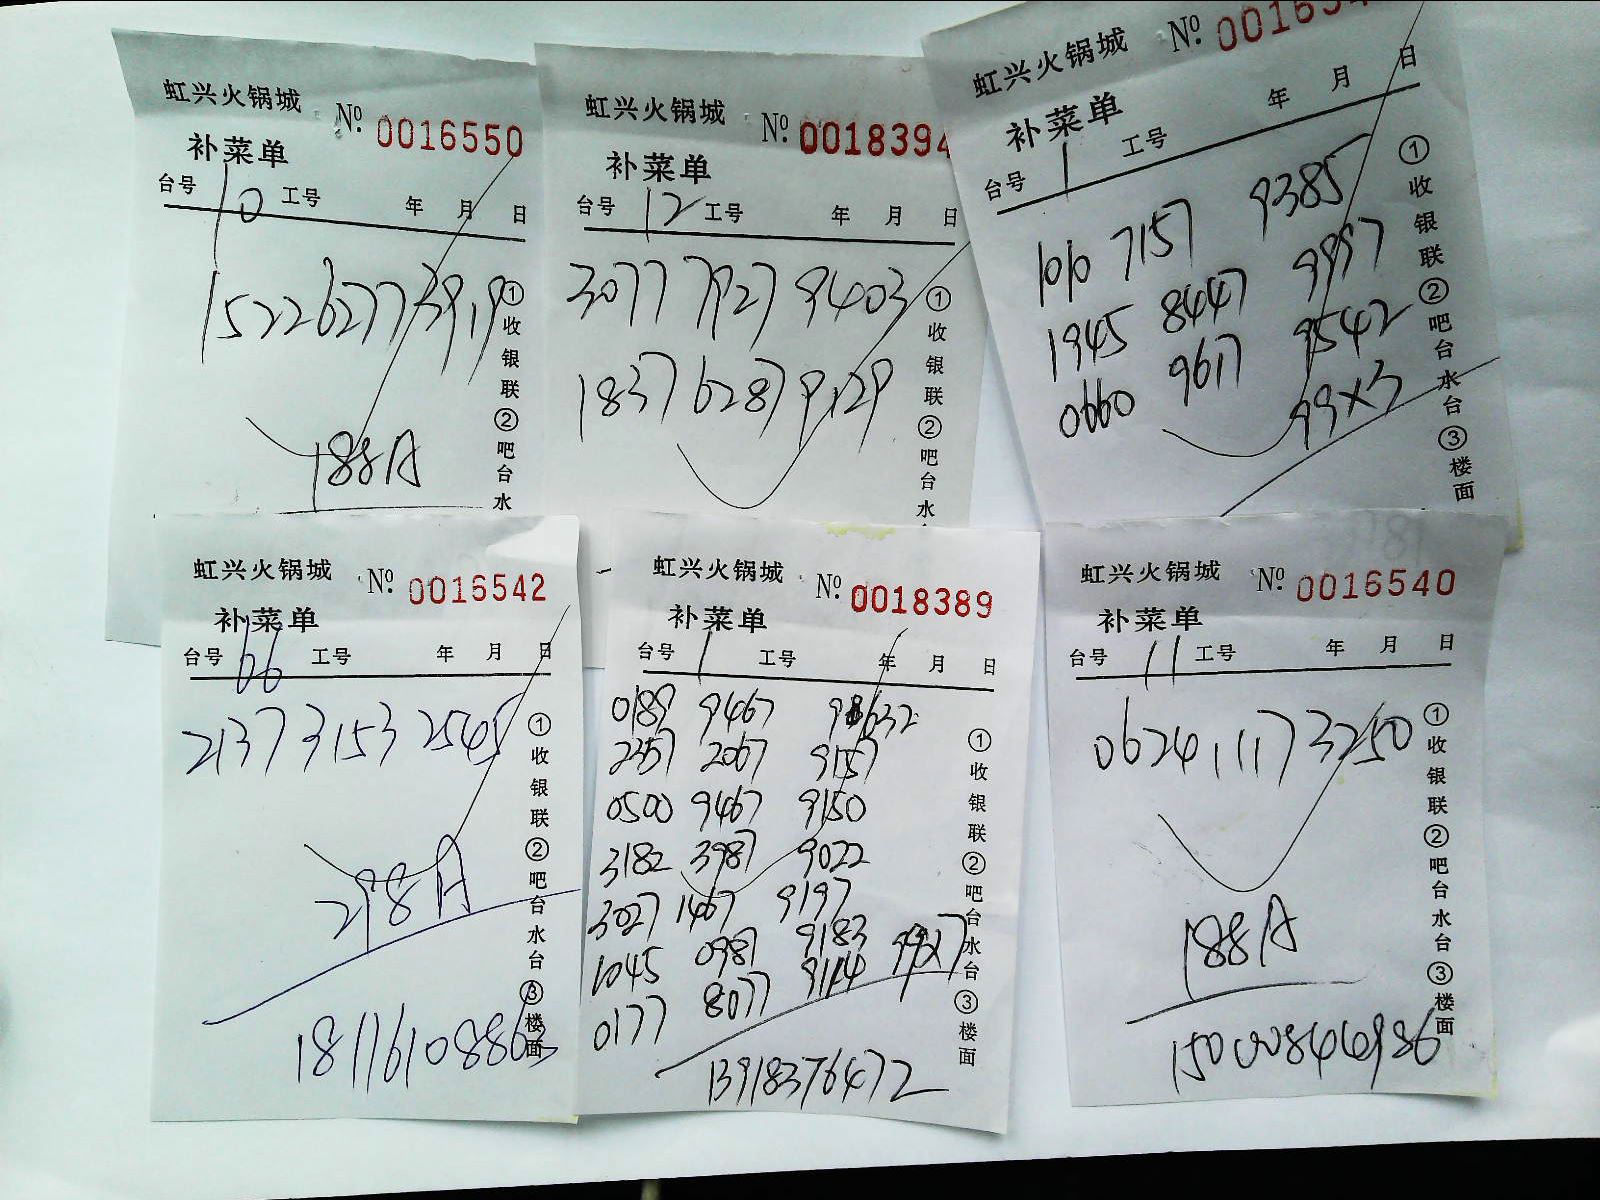 虹兴火锅城 № 0016550
补菜单
台号 10 工号 年 月 日
1522 6277 3919
188A
①收银联②吧台水
虹兴火锅城 № 0018394
补菜单
台号 12 工号 年 月 日
3077 7927 9403
1837 6287 9129
①收银联②吧台水
虹兴火锅城 №
补菜单
台号 1 工号 年 月 日
1010 7157 9385
1945 8447 9997
0660 9617 9542
99×3
①收银联②吧台水台③楼面
虹兴火锅城 № 0016542
补菜单
台号 66 工号 年 月 日
2137 3153 2545
298A
18116108863
①收银联②吧台水台③楼面
虹兴火锅城 № 0018389
补菜单
台号 1 工号 年 月 日
0189 9467
2357 2067 9157
0500 9467 9150
3182 3987 9022
3027 1467 9197
1045 0987 9183 99×7
0177 8077 9114
13918376472
①收银联②吧台水台③楼面
虹兴火锅城 № 0016540
补菜单
台号 11 工号 年 月 日
0624 1117 3250
188A
15000846986
①收银联②吧台水台③楼面